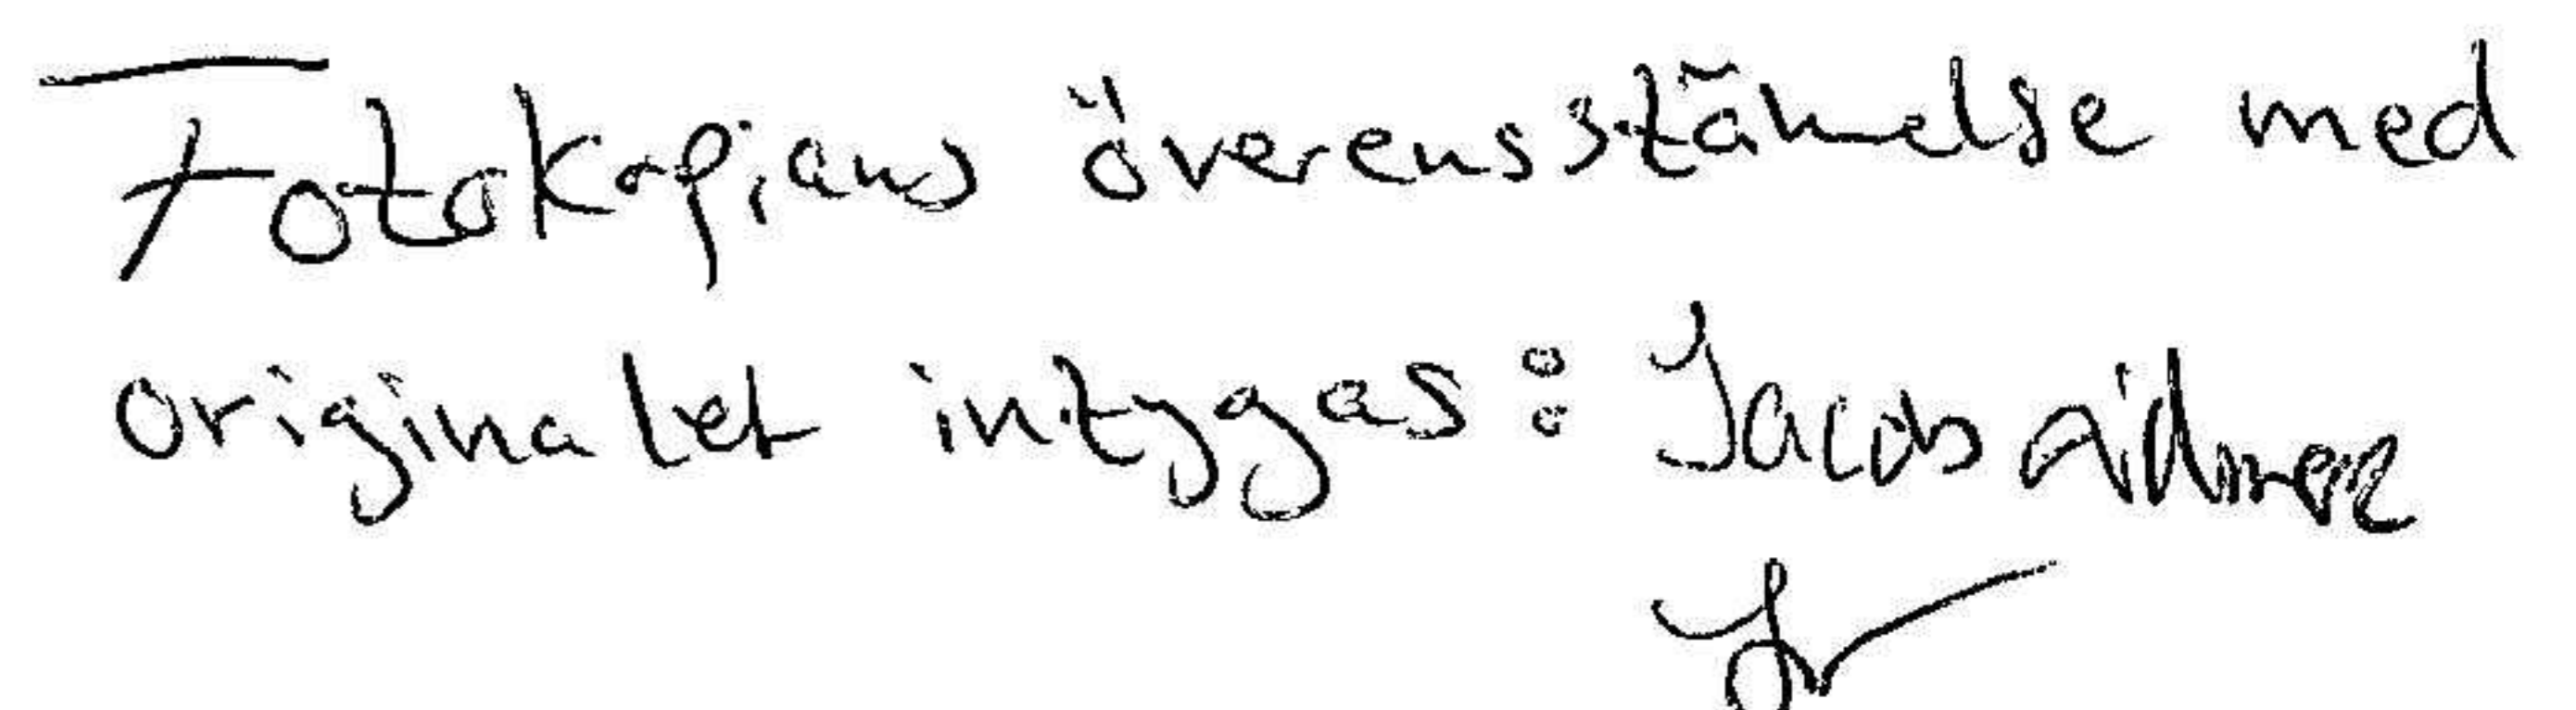 Fotokopians överensstämelse med
originalet intygas: Jacob